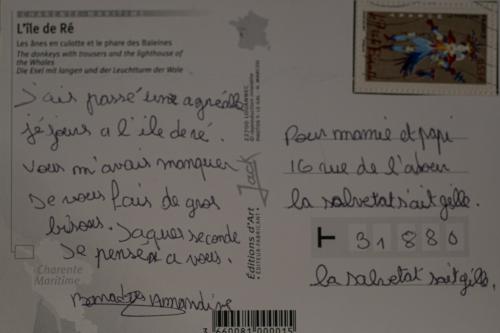 CHARENTE MARITIME
L'île de Ré
Les ânes en culotte et le phare des Baleines
The donkeys with trousers and the lighthouse of
the Whales
Die Esel mit langen und der Leuchtturm der Wale
J'ais passé une agréable
séjours a l'ile de ré.
Vous m'avais manquer
Je vous fais de gros
bisous. Jaques seconde
Je pense a vous.
Amandine
Charente
Maritime
Éditions d'Art
Jack
ÉDITEUR-FABRICANT
Pour mamie et papi
16 rue de l'
la salvetat sait gille.
31880
la salvetat sait gilles.
3 660081 000015